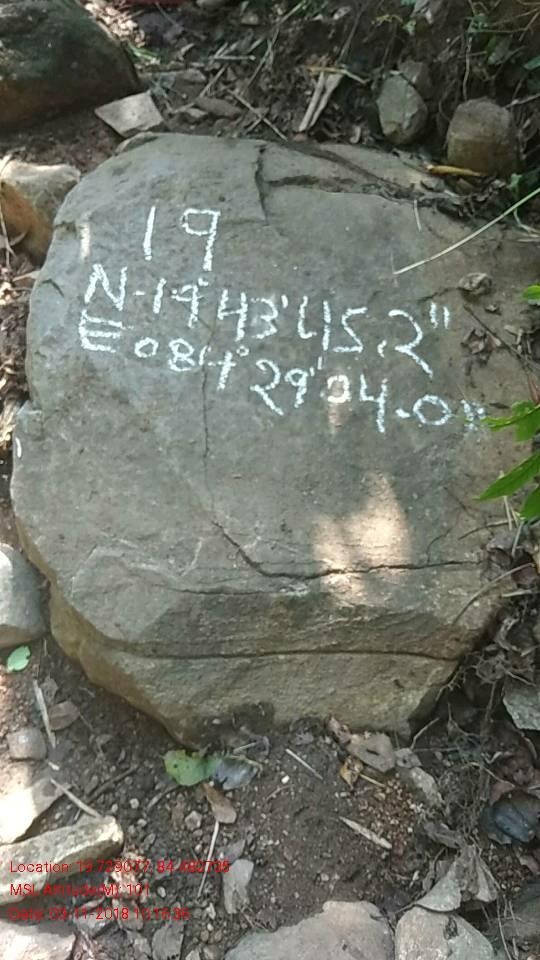 19
N-19° 43' 45.2"
E 084° 29' 04.0"
Location: 19.729077, 84.482735
MSL Altitude(M): 101
Date: 03-11-2018 10:16:36